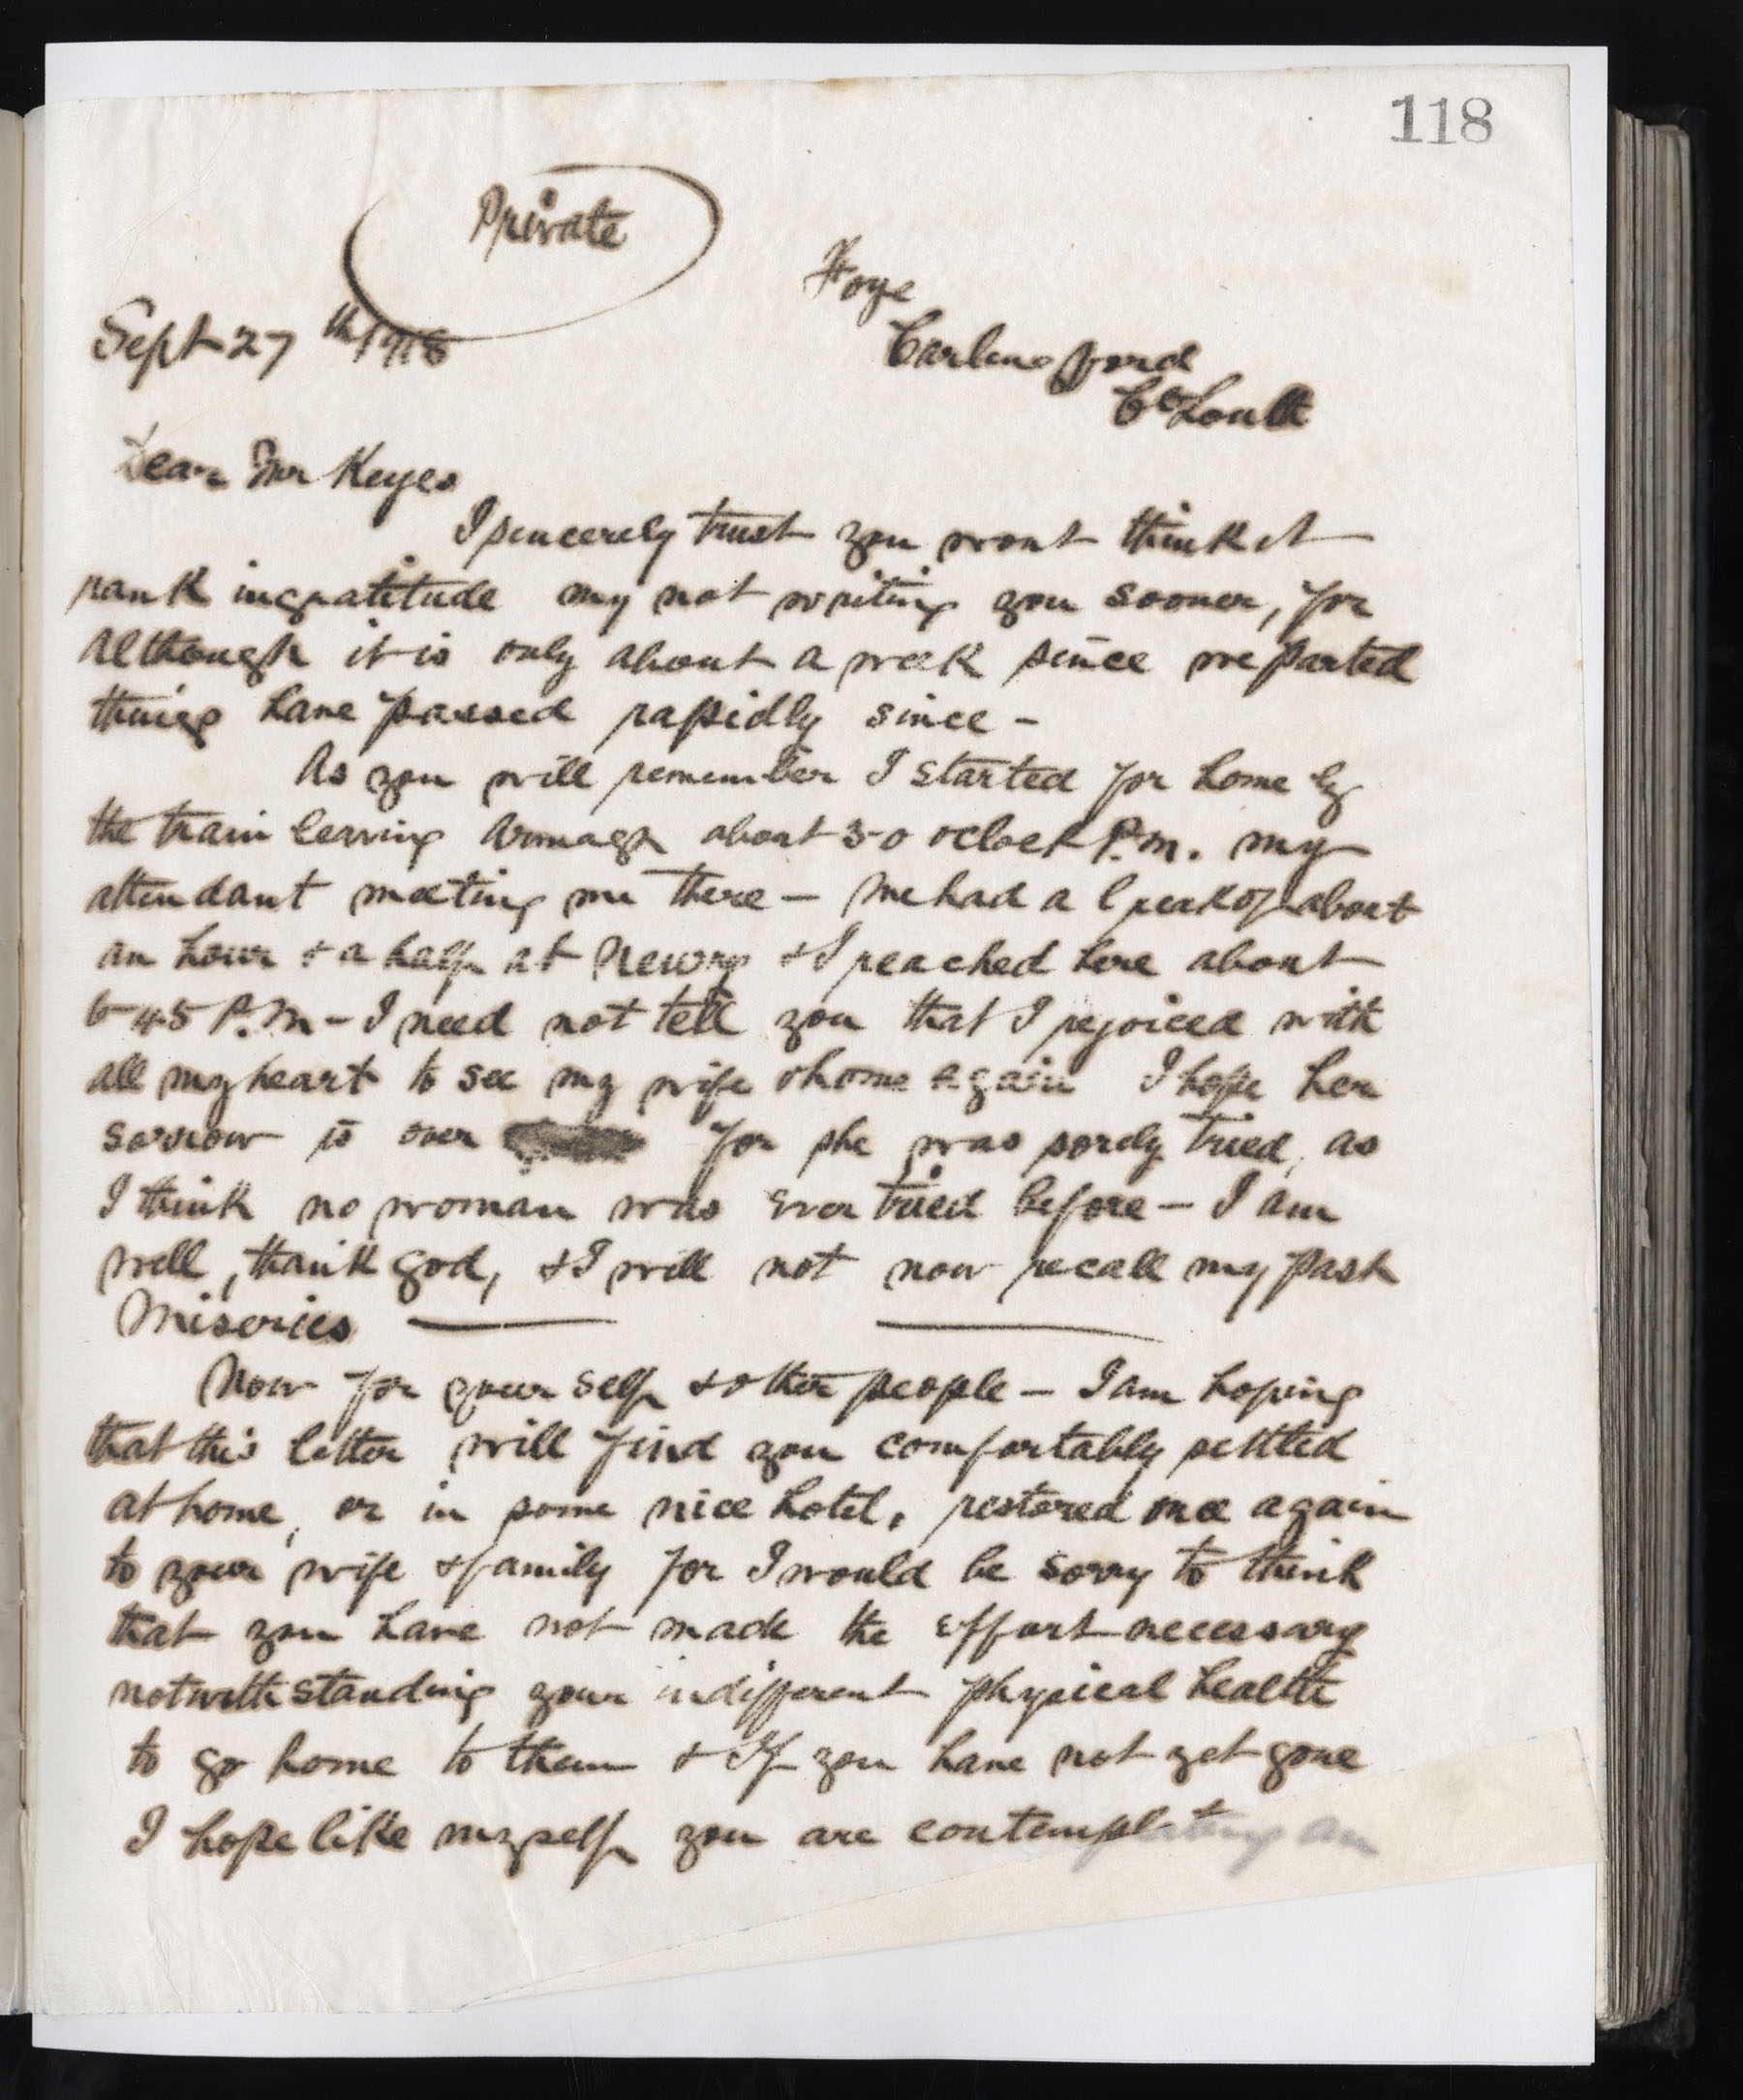 118
Private
Foye
Sept 27th 1918
Carlingford
Co Louth
Dear Mr Keyes
I sincerely trust you wont think it
rank ingratitude my not writing you sooner, for
Although it is only about a week since we parted
things have passed rapidly since -
As you will remember I started for home by
the train leaving Armagh about 3-0 oclock P.m. my
attendant meeting me there — We had a break of about
an hour + a half at Newry + I reached here about
6-45 P.M - I need not tell you that I rejoiced with
all my heart to see my wife & home again I hope her
sorrow is over for she was sorely tried, as
I think no woman was ever tried before — I am
well, thank god, + I will not now recall my past
Miseries
Now for your self + other people — I am hoping
that this letter will find you comfortably settled
at home, or in some nice hotel, restored once again
to your wife + family for I would be sorry to think
that you have not made the effort necessary
notwithstanding your indifferent physical health
to go home to them + If you have not yet gone
I hope like myself you are contemplating an